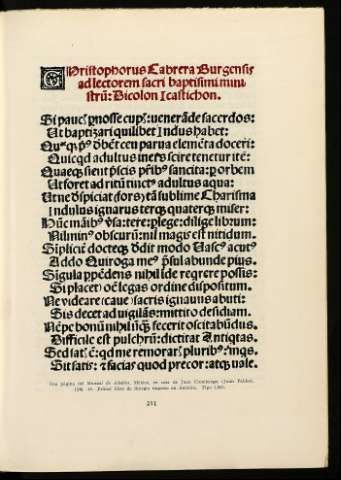 Christophorus Cabrera Burgensis
ad lectorem sacri baptismi mini
strū: Dicolon Icastichon.
Si paucꝭ pnosse cupꝭ: venerāde sacerdos:
Ut baptizari quilibet Indus habet:
Quęqꝫ pꝰ dībēt ceu parua elemēta doceri:
Quicqd adultus iners scire tenetur ité:
Quaeqꝫ sient pſcis pribꝰ sancita: ꝑ orbem
Ut foret ad ritū tinctꝰ adultus aqua:
Ut ne dſpiciat fors tā sublime Charisma
Indulus ignarus terqꝫ quaterqꝫ miser:
Hūc māibꝰ vſa: tere: plege: dilige librum:
Nil minꝰ obscurū: nil magis est nitidum.
Simplicit docteqꝫ ddit modo Vascꝰ acutꝰ
Addo Quiroga meꝰ psul abunde pius.
Sigula ppēdens nihil īde reqrere possis:
Si placet oēs legas ordine dispositum.
Ne videare (caue) sacris ignauus abuti:
Sis decet ad vigilās: mittito desidiam.
Nēpe bonū nihil vqꝫ fecerit oscitabūdus.
Difficile est pulchrū: dictitat Antiqtas.
Sed sat ē: qd me remorarꝭ pluribꝰ:
Sit satis: et facias quod precor: atqꝫ vale.
Una página del Manual de adultos, México, en casa de Juan Cromberger (Juan Pablos),
1540. 4º. Primer libro de liturgia impreso en América.
211